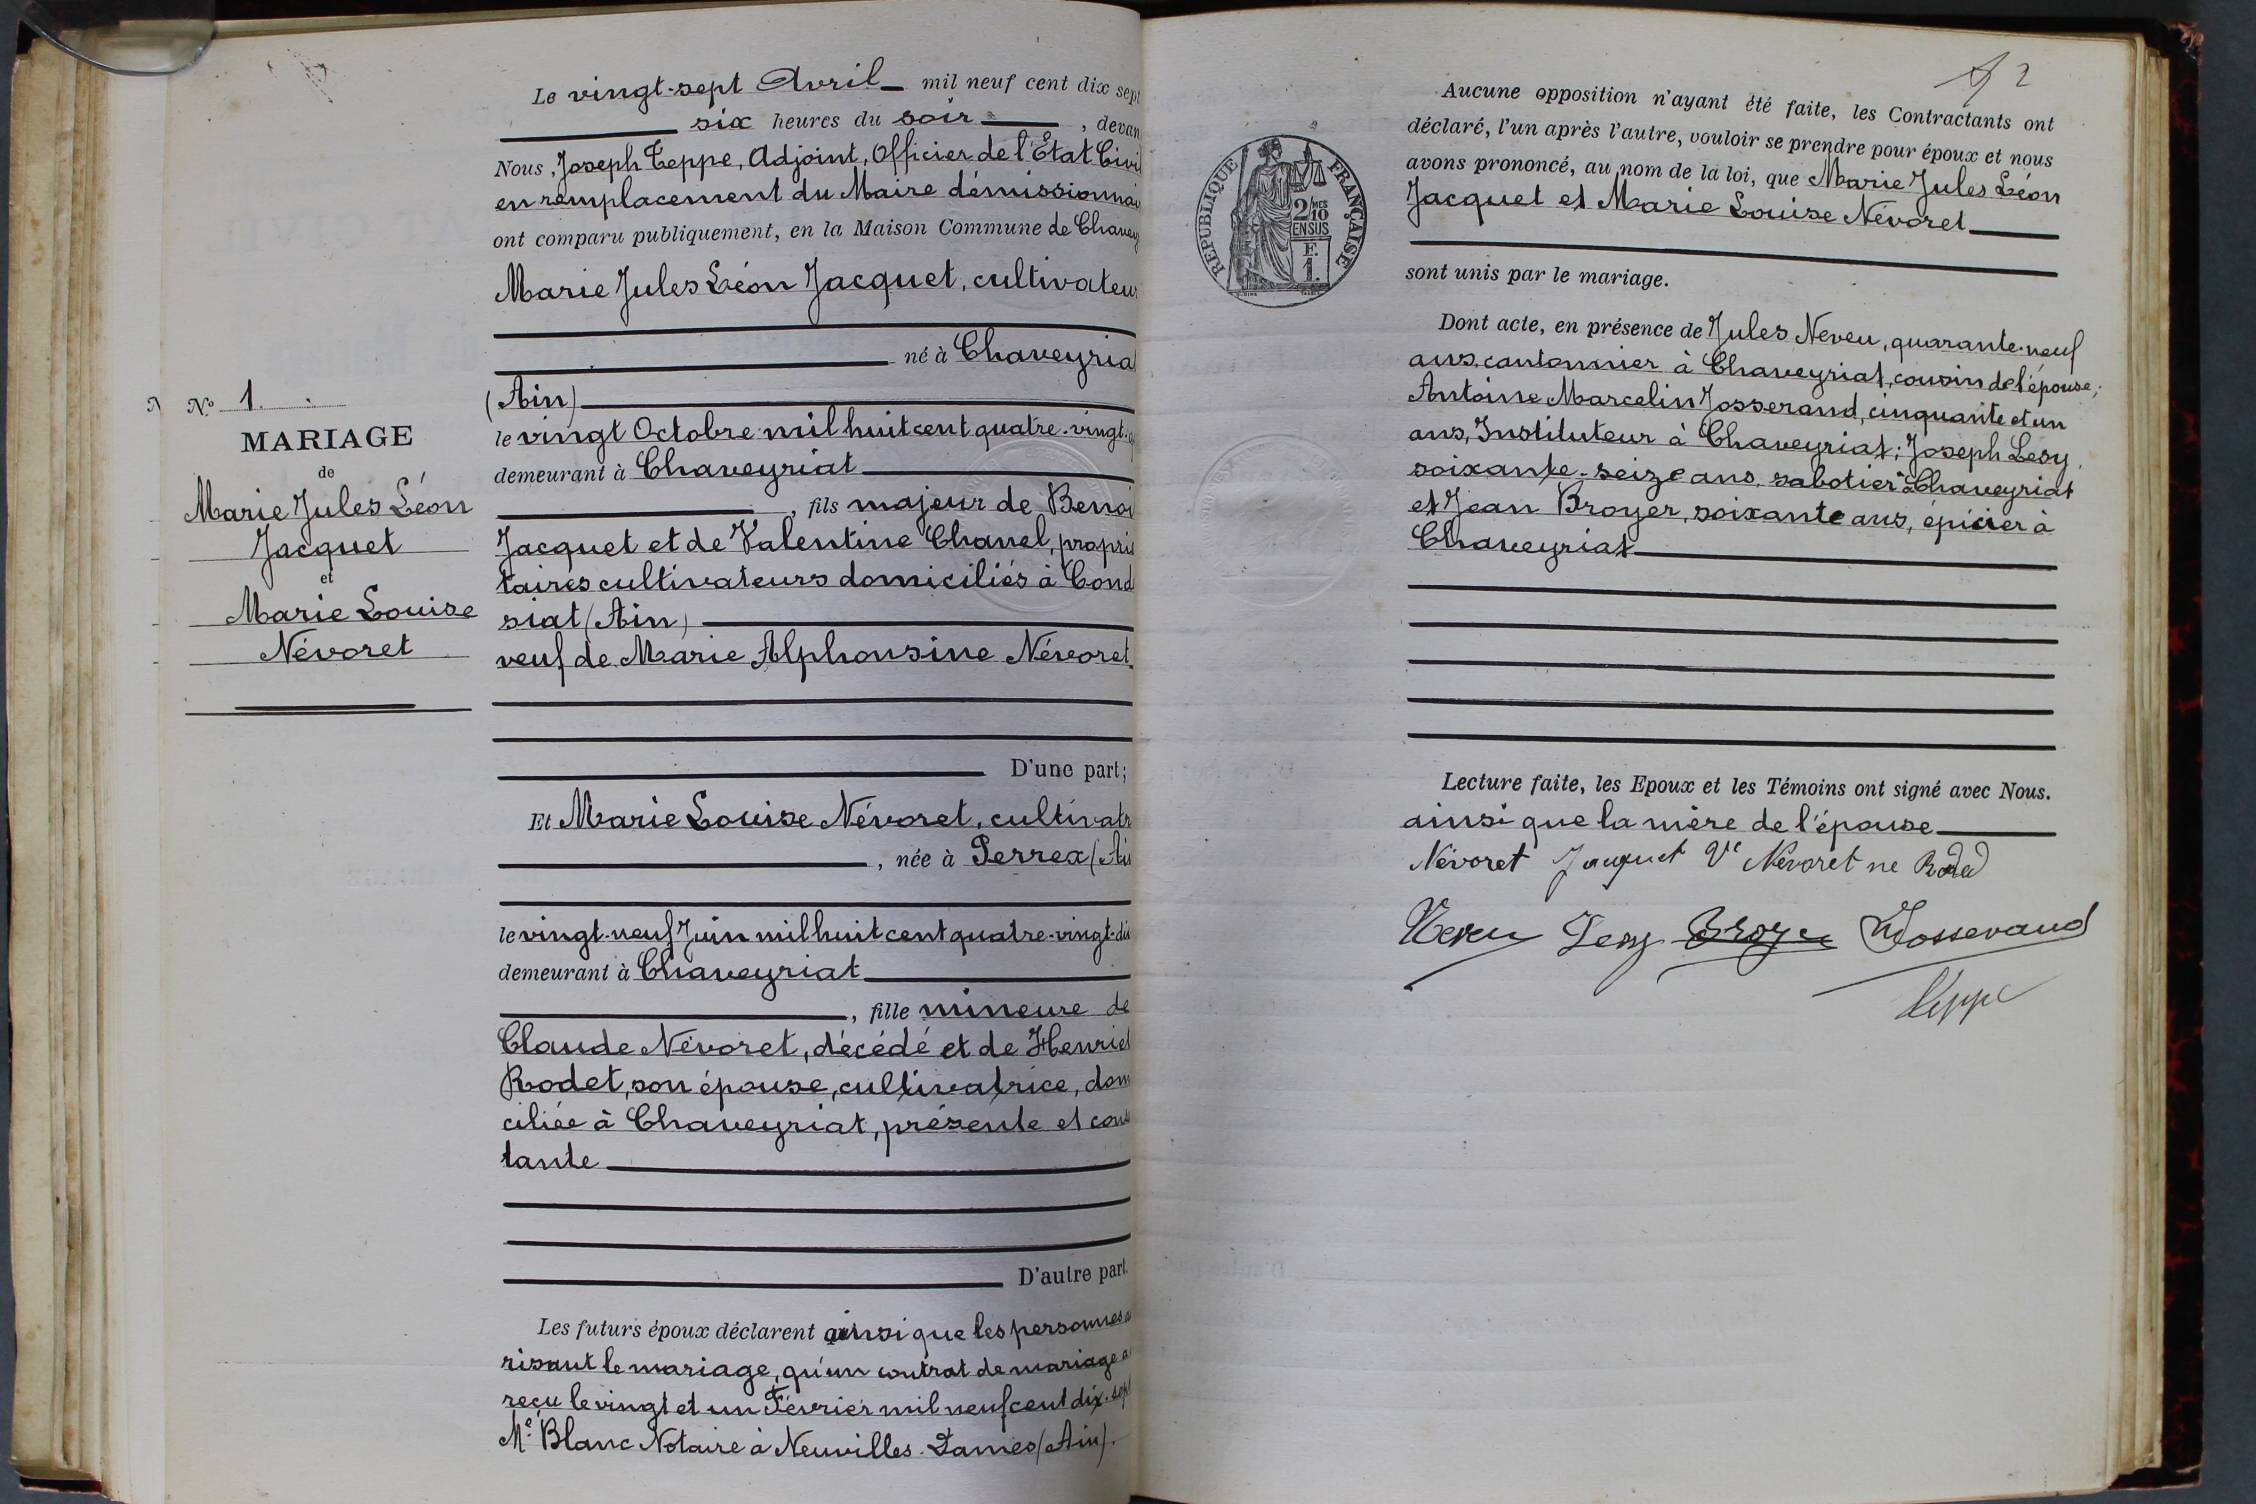 Le vingt-sept Avril mil neuf cent dix sept
six heures du soir, devan
Nous, Joseph Teppe, Adjoint, Officier de l'État Civi
en remplacement du Maire démissionnai
ont comparu publiquement, en la Maison Commune de Chavey
Marie Jules Léon Jacquet, cultivateur
né à Chaveyria
(Ain)
le vingt Octobre mil huit cent quatre-vingt-
demeurant à Chaveyriat
, fils majeur de Benoi
Jacquet et de Valentine Chanel, proprié
taires cultivateurs domiciliés à Cond
siat (Ain)
veuf de Marie Alphonsine Névoret
D'une part;
Et Marie Louise Névoret, cultivatr
, née à Perrex (Ai
le vingt-neuf Juin mil huit cent quatre-vingt-dix
demeurant à Chaveyriat
, fille mineure de
Claude Névoret, décédé et de Henriet
Rodet, son épouse, cultivatrice, dom
ciliée à Chaveyriat, présente et cons
tante
D'autre part.
Les futurs époux déclarent ainsi que les personnes a
risant le mariage, qu'un contrat de mariage a
reçu le vingt et un Février mil neuf cent dix-sept
Me Blanc Notaire à Neuville-s-Dames (Ain).
N° 1.
MARIAGE
de
Marie Jules Léon
Jacquet
et
Marie Louise
Névoret
2
Aucune opposition n'ayant été faite, les Contractants ont
déclaré, l'un après l'autre, vouloir se prendre pour époux et nous
avons prononcé, au nom de la loi, que Marie Jules Léon
Jacquet et Marie Louise Névoret
sont unis par le mariage.
RÉPUBLIQUE FRANÇAISE
2/10 MES
EN SUS
F.
1.
Dont acte, en présence de Jules Neveu, quarante-neuf
ans, cantonnier à Chaveyriat, cousin de l'épouse;
Antoine Marcelin Josserand, cinquante et un
ans, Instituteur à Chaveyriat; Joseph Lesy,
soixante-seize ans, sabotier à Chaveyriat
et Jean Broyer, soixante ans, épicier à
Chaveyriat
Lecture faite, les Epoux et les Témoins ont signé avec Nous.
ainsi que la mère de l'épouse
Névoret Jacquet Ve Névoret ne Rodet
Neveu Lesy Broyer Josserand
Teppe